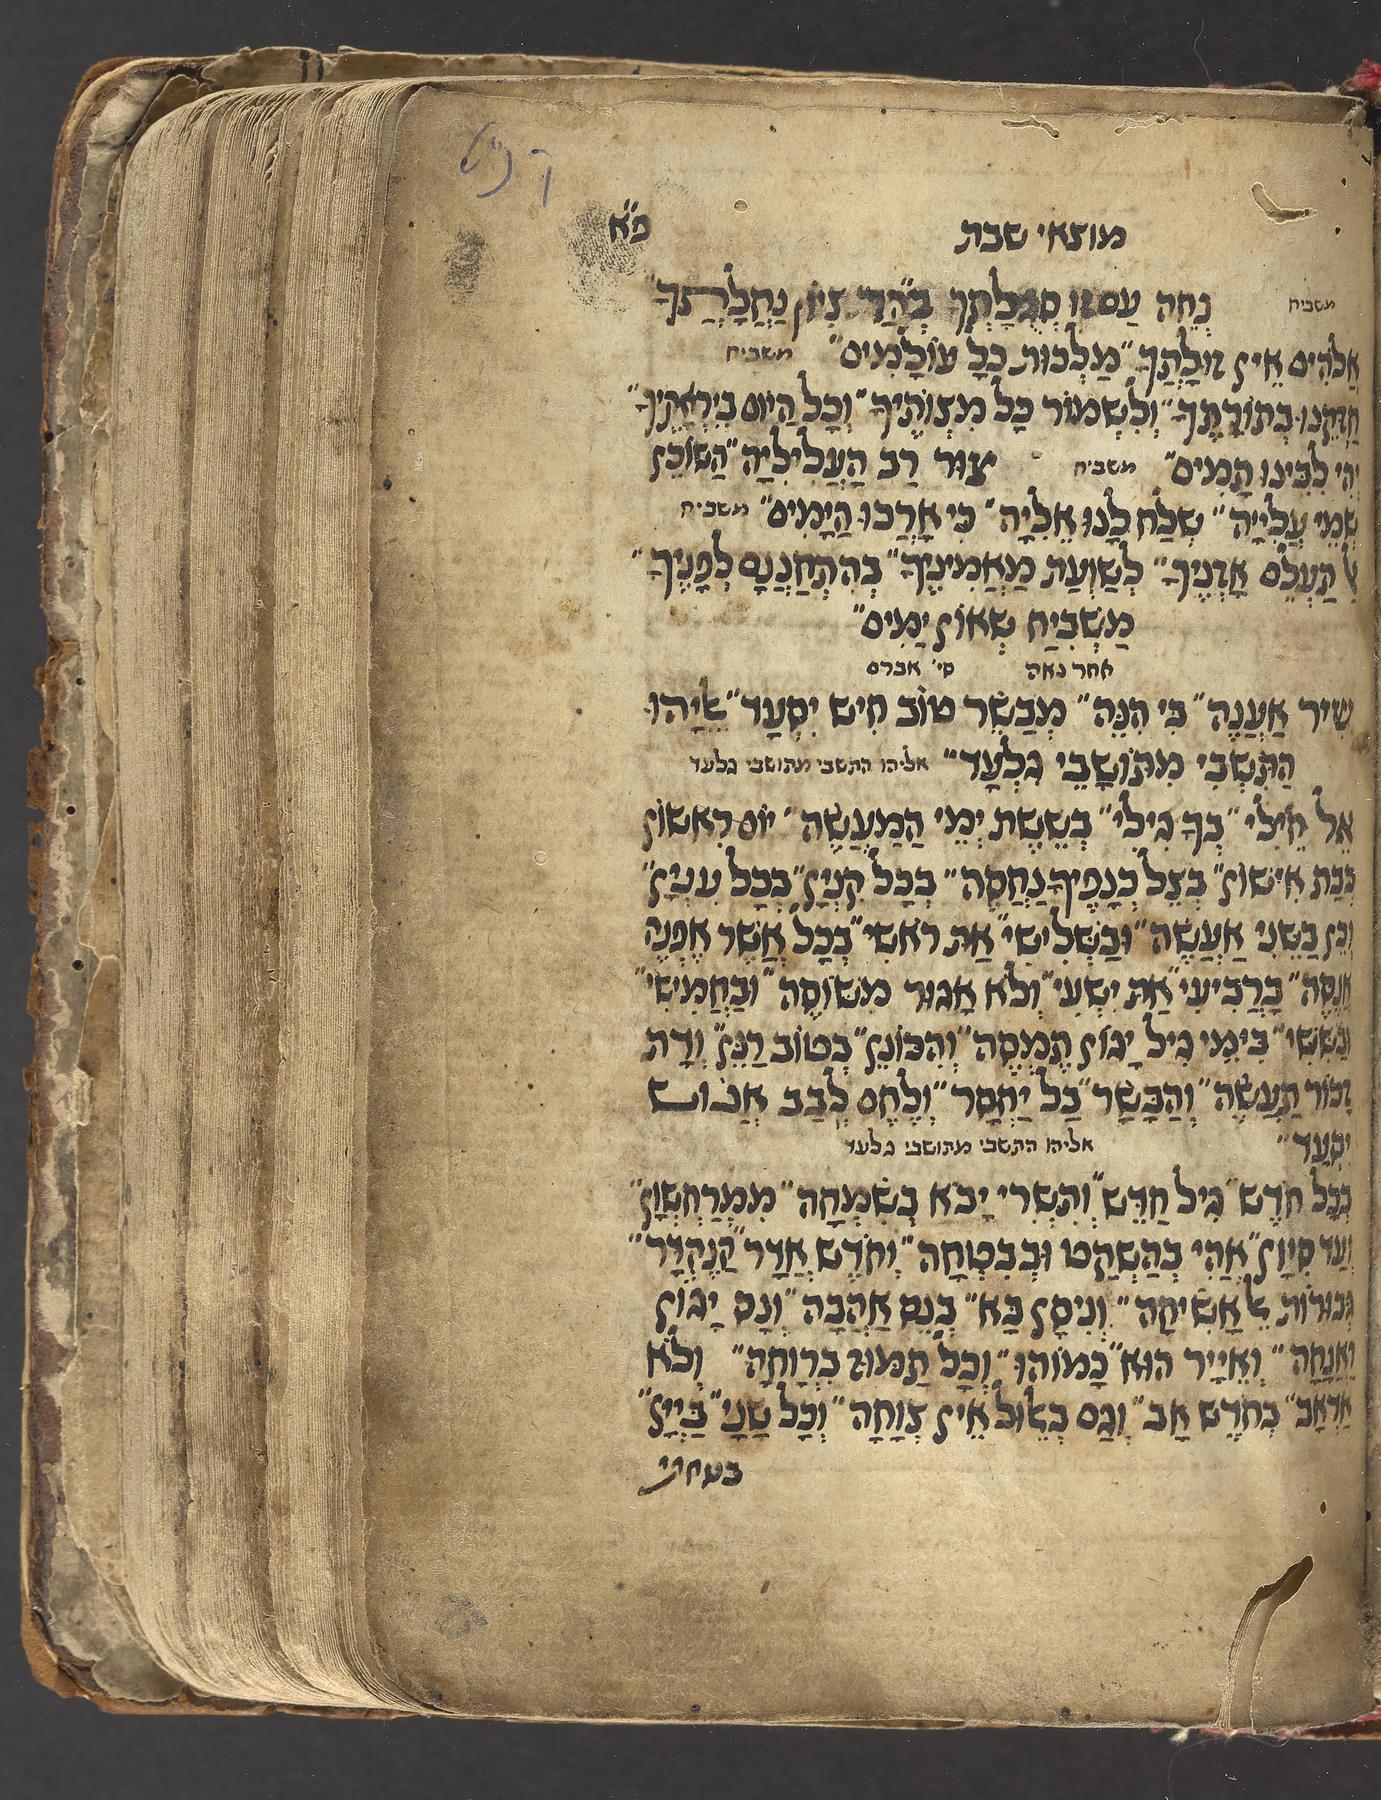 מוצאי שבת פ״א
משביח נְחֵה עַם זוּ סְגֻלָּתְךָ בְּהַר צִיּוֹן נַחֲלָתְךָ
אֱלֹהִים אֵין זוּלָתְךָ״ מַלְכוּת כָּל עוֹלָמִים״ משביח
חַזְּקֵנוּ בְּתוֹרָתֶךָ״ וְלִשְׁמוֹר כָּל מִצְוֹתֶיךָ״ וְכָל הַיּוֹם בְּיִרְאָתֶיךָ
יְהִי לִבֵּינוּ תָמִים״ משביח צוּר רַב הָעֲלִילִיָּה״ הַשּׁוֹכֵן
שְׁמֵי עֲלִיָּיה״ שְׁלַח לָנוּ אֵלִיָּה״ כִּי אָרְכוּ הַיָּמִים״ משביח
אַל תַּעְלֵם אָזְנֶיךָ״ לְשַׁוְעַת מַאֲמִינֶיךָ״ בְּהִתְחַנֲנָם לְפָנֶיךָ״
מַשְׁבִּיחַ שְׁאוֹן יַמִּים״
אחר נאה סי׳ אברם
שִׁיר אַעֲנֶה״ כִּי הִנֵּה״ מְבַשֵּׂר טוֹב חִישׁ יִסְעַד״ אֵלִיָּהוּ
הַתִּשְׁבִּי מִתּוֹשָׁבֵי גִלְעָד״ אליהו התשבי מתושבי גלעד
אֵל חֵילִי״ בְּךָ גִילִי״ בְּשֵׁשֶׁת יְמֵי הַמַּעֲשֶׂה״ יוֹם רִאשׁוֹן
כְּבַת אִישׁוֹן״ בְּצֵל כְּנָפֶיךָ נֶחֱסֶה״ בְּכָל קִנְיָן״ בְּכָל עִנְיָן״
וְכֵן בַּשֵּׁנִי אַעֲשֶׂה״ וּבַשְּׁלִישִׁי״ אַתְּ רֹאשִׁי״ בְּכָל אֲשֶׁר אֶפְנֶה
אֲנַסֶּה״ בָּרְבִיעִי״ אַתְּ יִשְׁעִי״ וְלֹא אָגוּר מִשּׁוֹסֶה״ וּבַחֲמִישִׁי״
וּבַשִּׁשִּׁי״ בִּימֵי גִיל יָגוֹן תֶּמְסֶה״ וְהִכּוֹנֵן״ בְּטוֹב רַנֵּן״ וְדָת
זָכוֹר תַּעֲשֶׂה״ וְהַבָּשָׂר״ בַּל יֶחְסָר״ וְלֶחֶם לְבַב אֱנוֹשׁ
יִסְעַד״ אליהו התשבי מתושבי גלעד
בְּכָל חֹדֶשׁ״ גִּיל חַדֵּשׁ״ וְתִשְׁרִי יָבֹא בְּשִׂמְחָה״ מִמַּרְחֶשְׁוָן
וְעַד סִיוָן״ אֱהִי בְּהַשְׁקֵט וּבְבִטְחָה״ וְחֹדֶשׁ אֲדָר״
גְּבוּרוֹת אֵל אָשִׂיחָה״ וְנִיסָן בָּא״ בְּנֵס אַהֲבָה״ וְנָס יָגוֹן
וַאֲנָחָה״ וְאִייָּר הוּא״ כָּמוֹהוּ״ וְכָל תַּמּוּז בִּרְוָחָה״ וְלֹא
אֶדְאַב״ בְּחֹדֶשׁ אָב״ וְגַם בֶּאֱלוּל אֵין צְוָחָה״ וְכָל שָׁנַי״ בַּיְיָ״